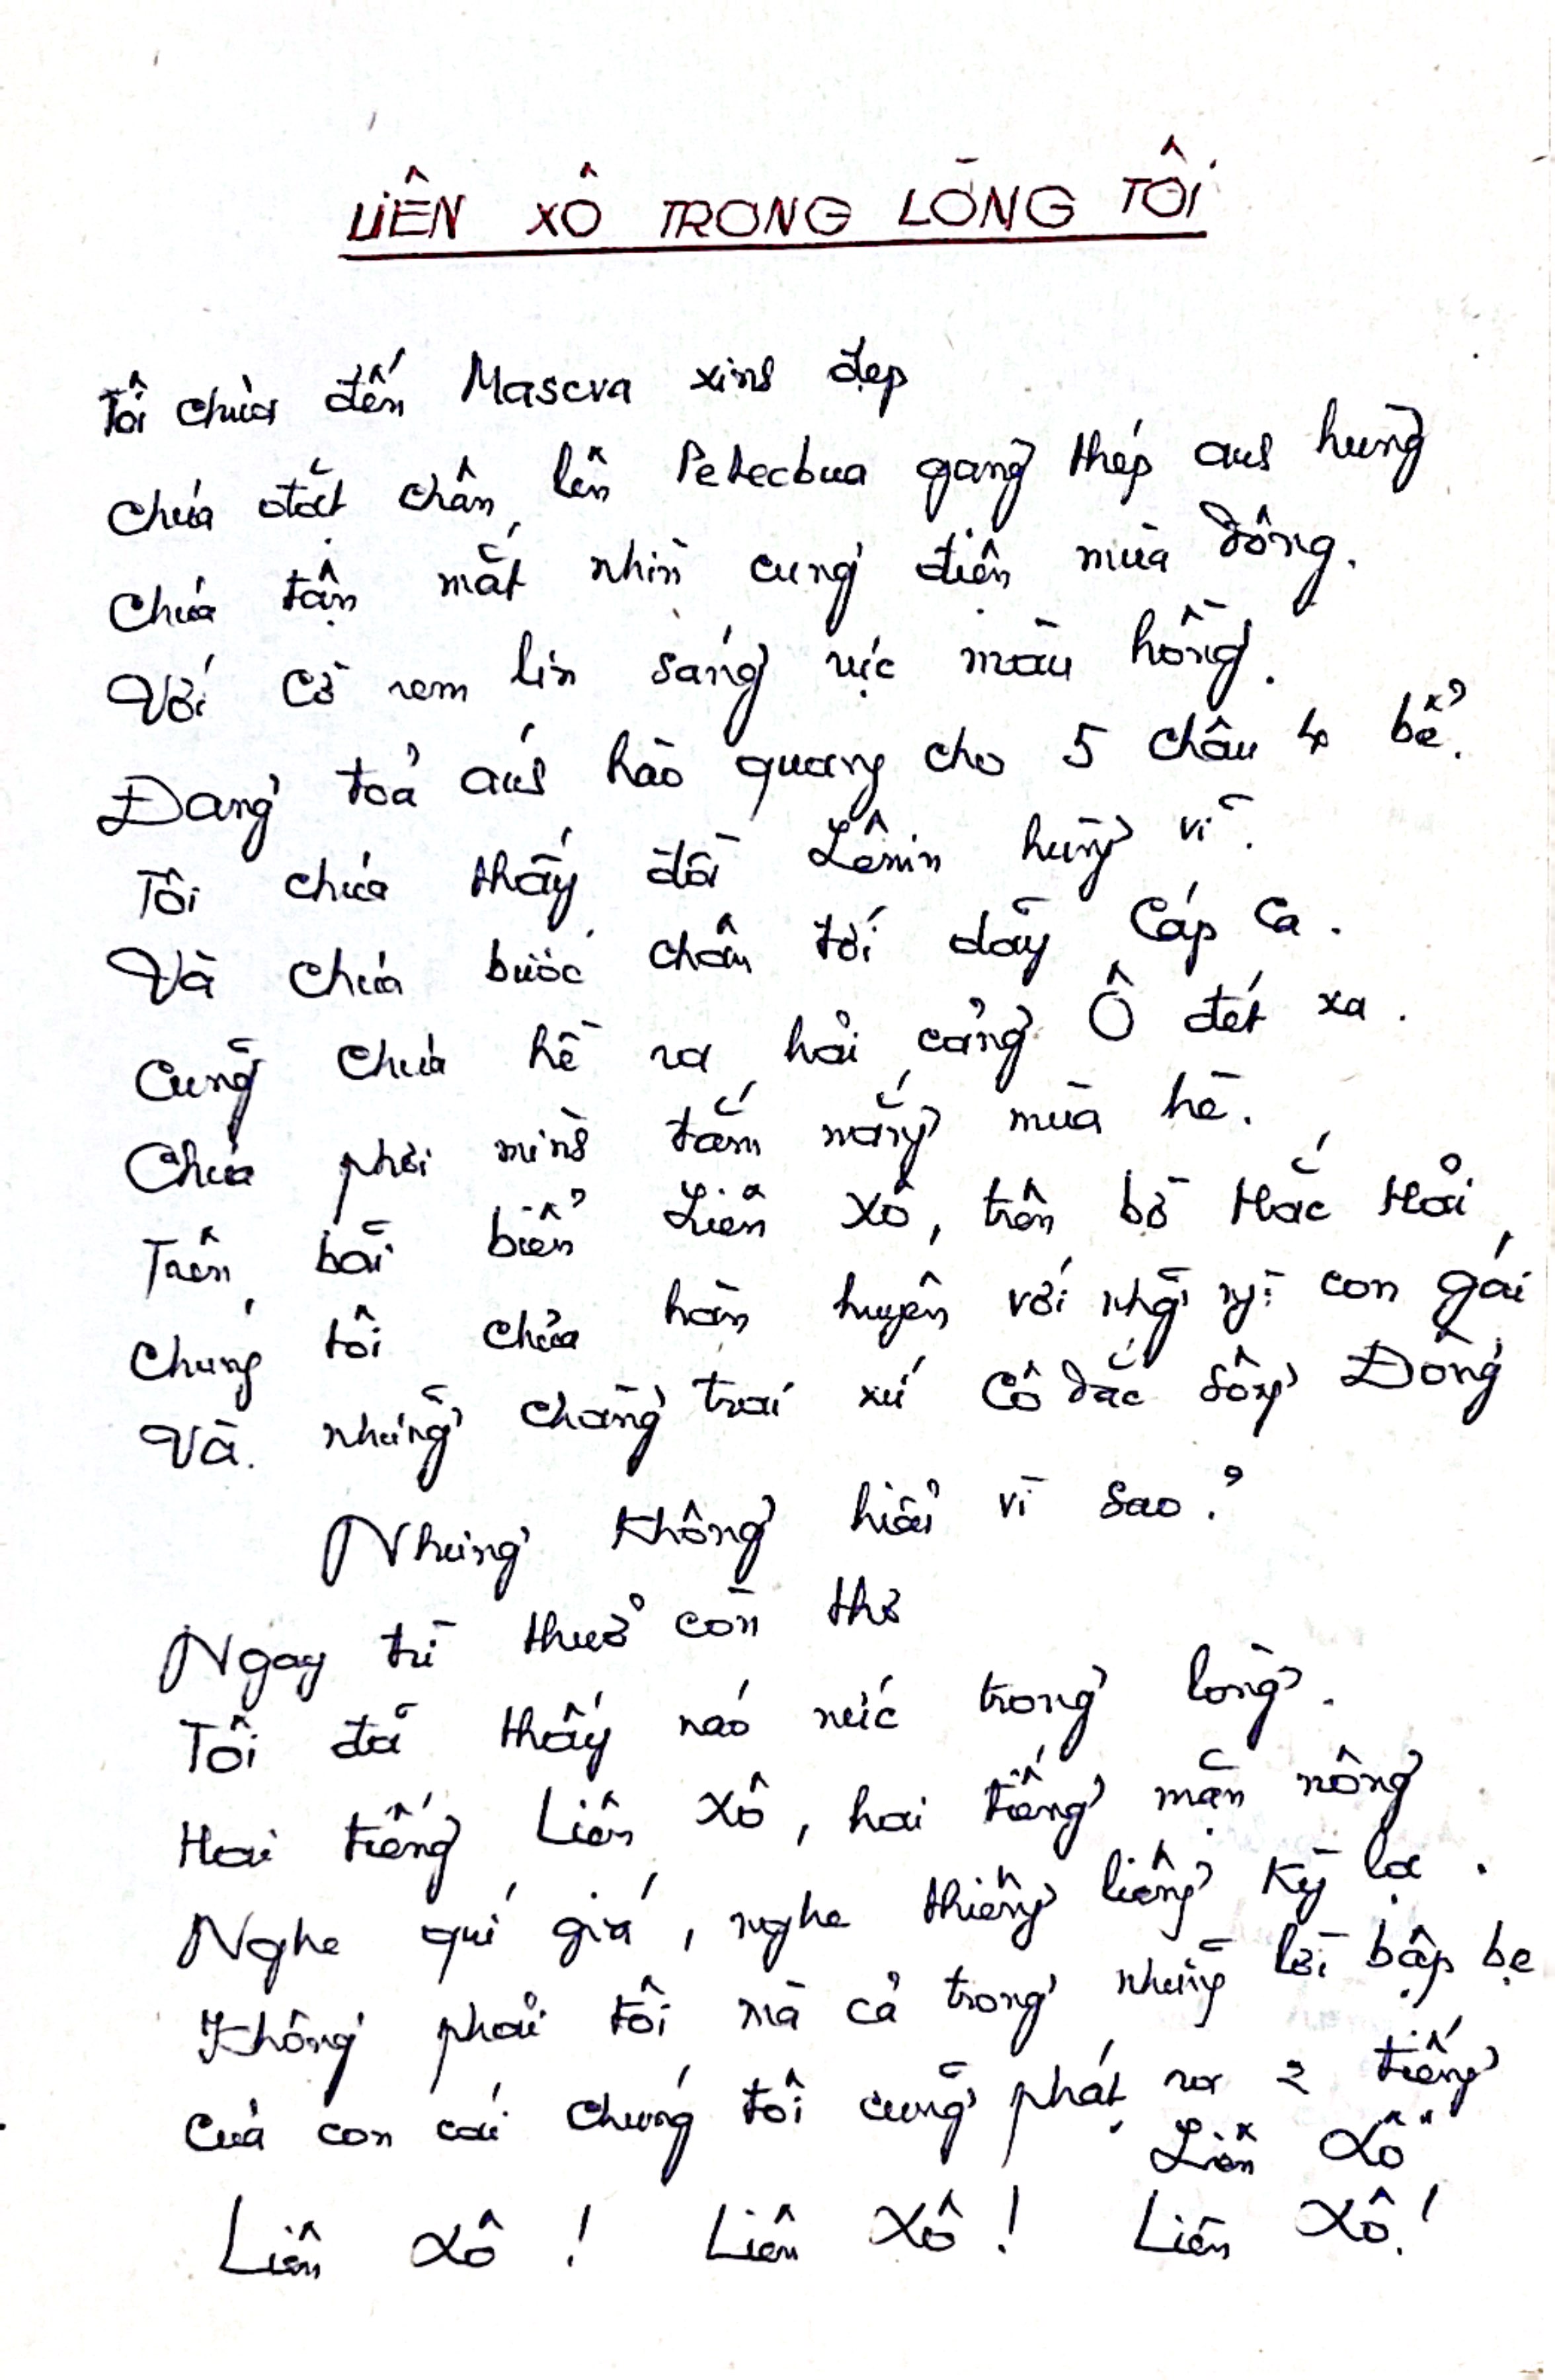 LIÊN XÔ TRONG LÒNG TÔI
Tôi chưa đến Mascva xinh đẹp
Chưa đặt chân lên Petecbua gang thép anh hùng
Chưa tận mắt nhìn cung điện mùa đông.
Với Cờ rem lin sáng rực màu hồng.
Đang toả ánh hào quang cho 5 châu 4 bể.
Tôi chưa thấy đồi Lênin hùng vĩ.
Và chưa bước chân tới dãy Cáp Ca.
Cũng chưa hề ra hải cảng Ô đét xa.
Chưa phơi mình tắm nắng mùa hè.
Trên bãi biển Liên Xô, trên bờ Hắc Hải
Chúng tôi chưa hàn huyên với nhg~ ng: con gái
Và những chàng trai xứ Cô dắc sông Đông
Nhưng không hiểu vì sao?
Ngay từ thuở còn thơ
Tôi đã thấy náo nức trong lòng.
Hai tiếng Liên Xô, hai tiếng mặn nồng
Nghe quí giá, nghe thiêng liêng kỳ lạ.
Không phải tôi mà cả trong những lời bập bẹ
Của con cái chúng tôi cũng phát ra 2 tiếng
Liên Xô"
Liên Xô! Liên Xô! Liên Xô!